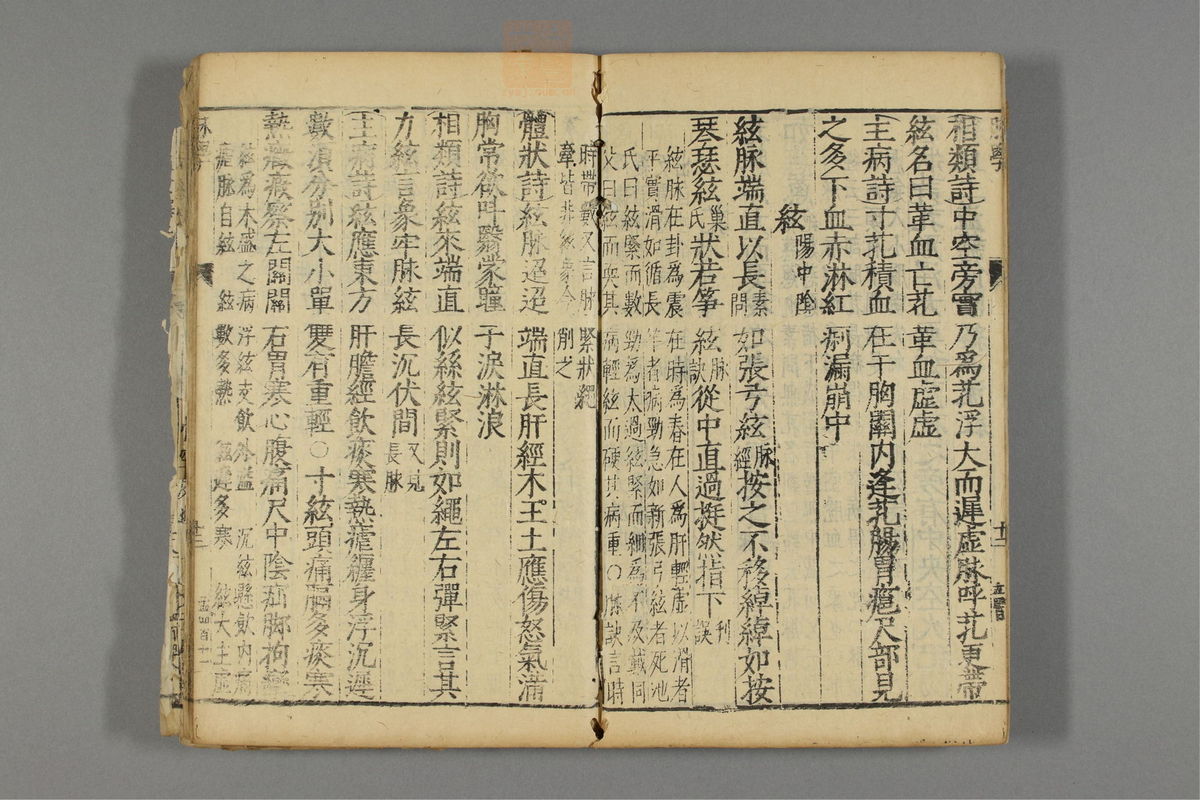 相類詩中空旁實乃爲芤浮大而遲虛脉呼芤更帶
絃名曰革血亡芤革血虛虛
主病詩寸芤積血在于胸關內逢芤腸胃癰尺部見
之多下血赤淋紅痢漏崩中
絃陽中陰
絃脉端直以長素問如張弓絃脉經按之不移綽綽如按
琴瑟絃巢氏狀若箏絃脉訣從中直過挺然指下刊誤
絃脉在卦爲震在時爲春在人爲肝輕虛以滑者
平實滑如循長竿者病勁急如新張弓絃者死池
氏曰絃緊而數勁爲太過絃緊而細爲不及戴同
父曰絃而耎其病輕絃而硬其病重○脉訣言時
時帶數又言脉緊狀繩
牽皆非絃象今削之
體狀詩絃脉迢迢端直長肝經木王土應傷怒氣滿
胸常欲呌翳蒙瞳子淚淋浪
相類詩絃來端直似絲絃緊則如繩左右彈緊言其
力絃言象牢脉絃長沉伏間又見長脉
主病詩絃應東方肝膽經飲痰寒熱瘧纏身浮沉遲
數須分別大小單雙有重輕○寸絃頭痛膈多痰寒
熱癥瘕察左關關右胃寒心腹痛尺中陰疝脚拘攣
絃爲木盛之病浮絃支飲外溢沉絃懸飲內痛
瘧脉自絃絃數多熱絃遲多寒絃大主虛